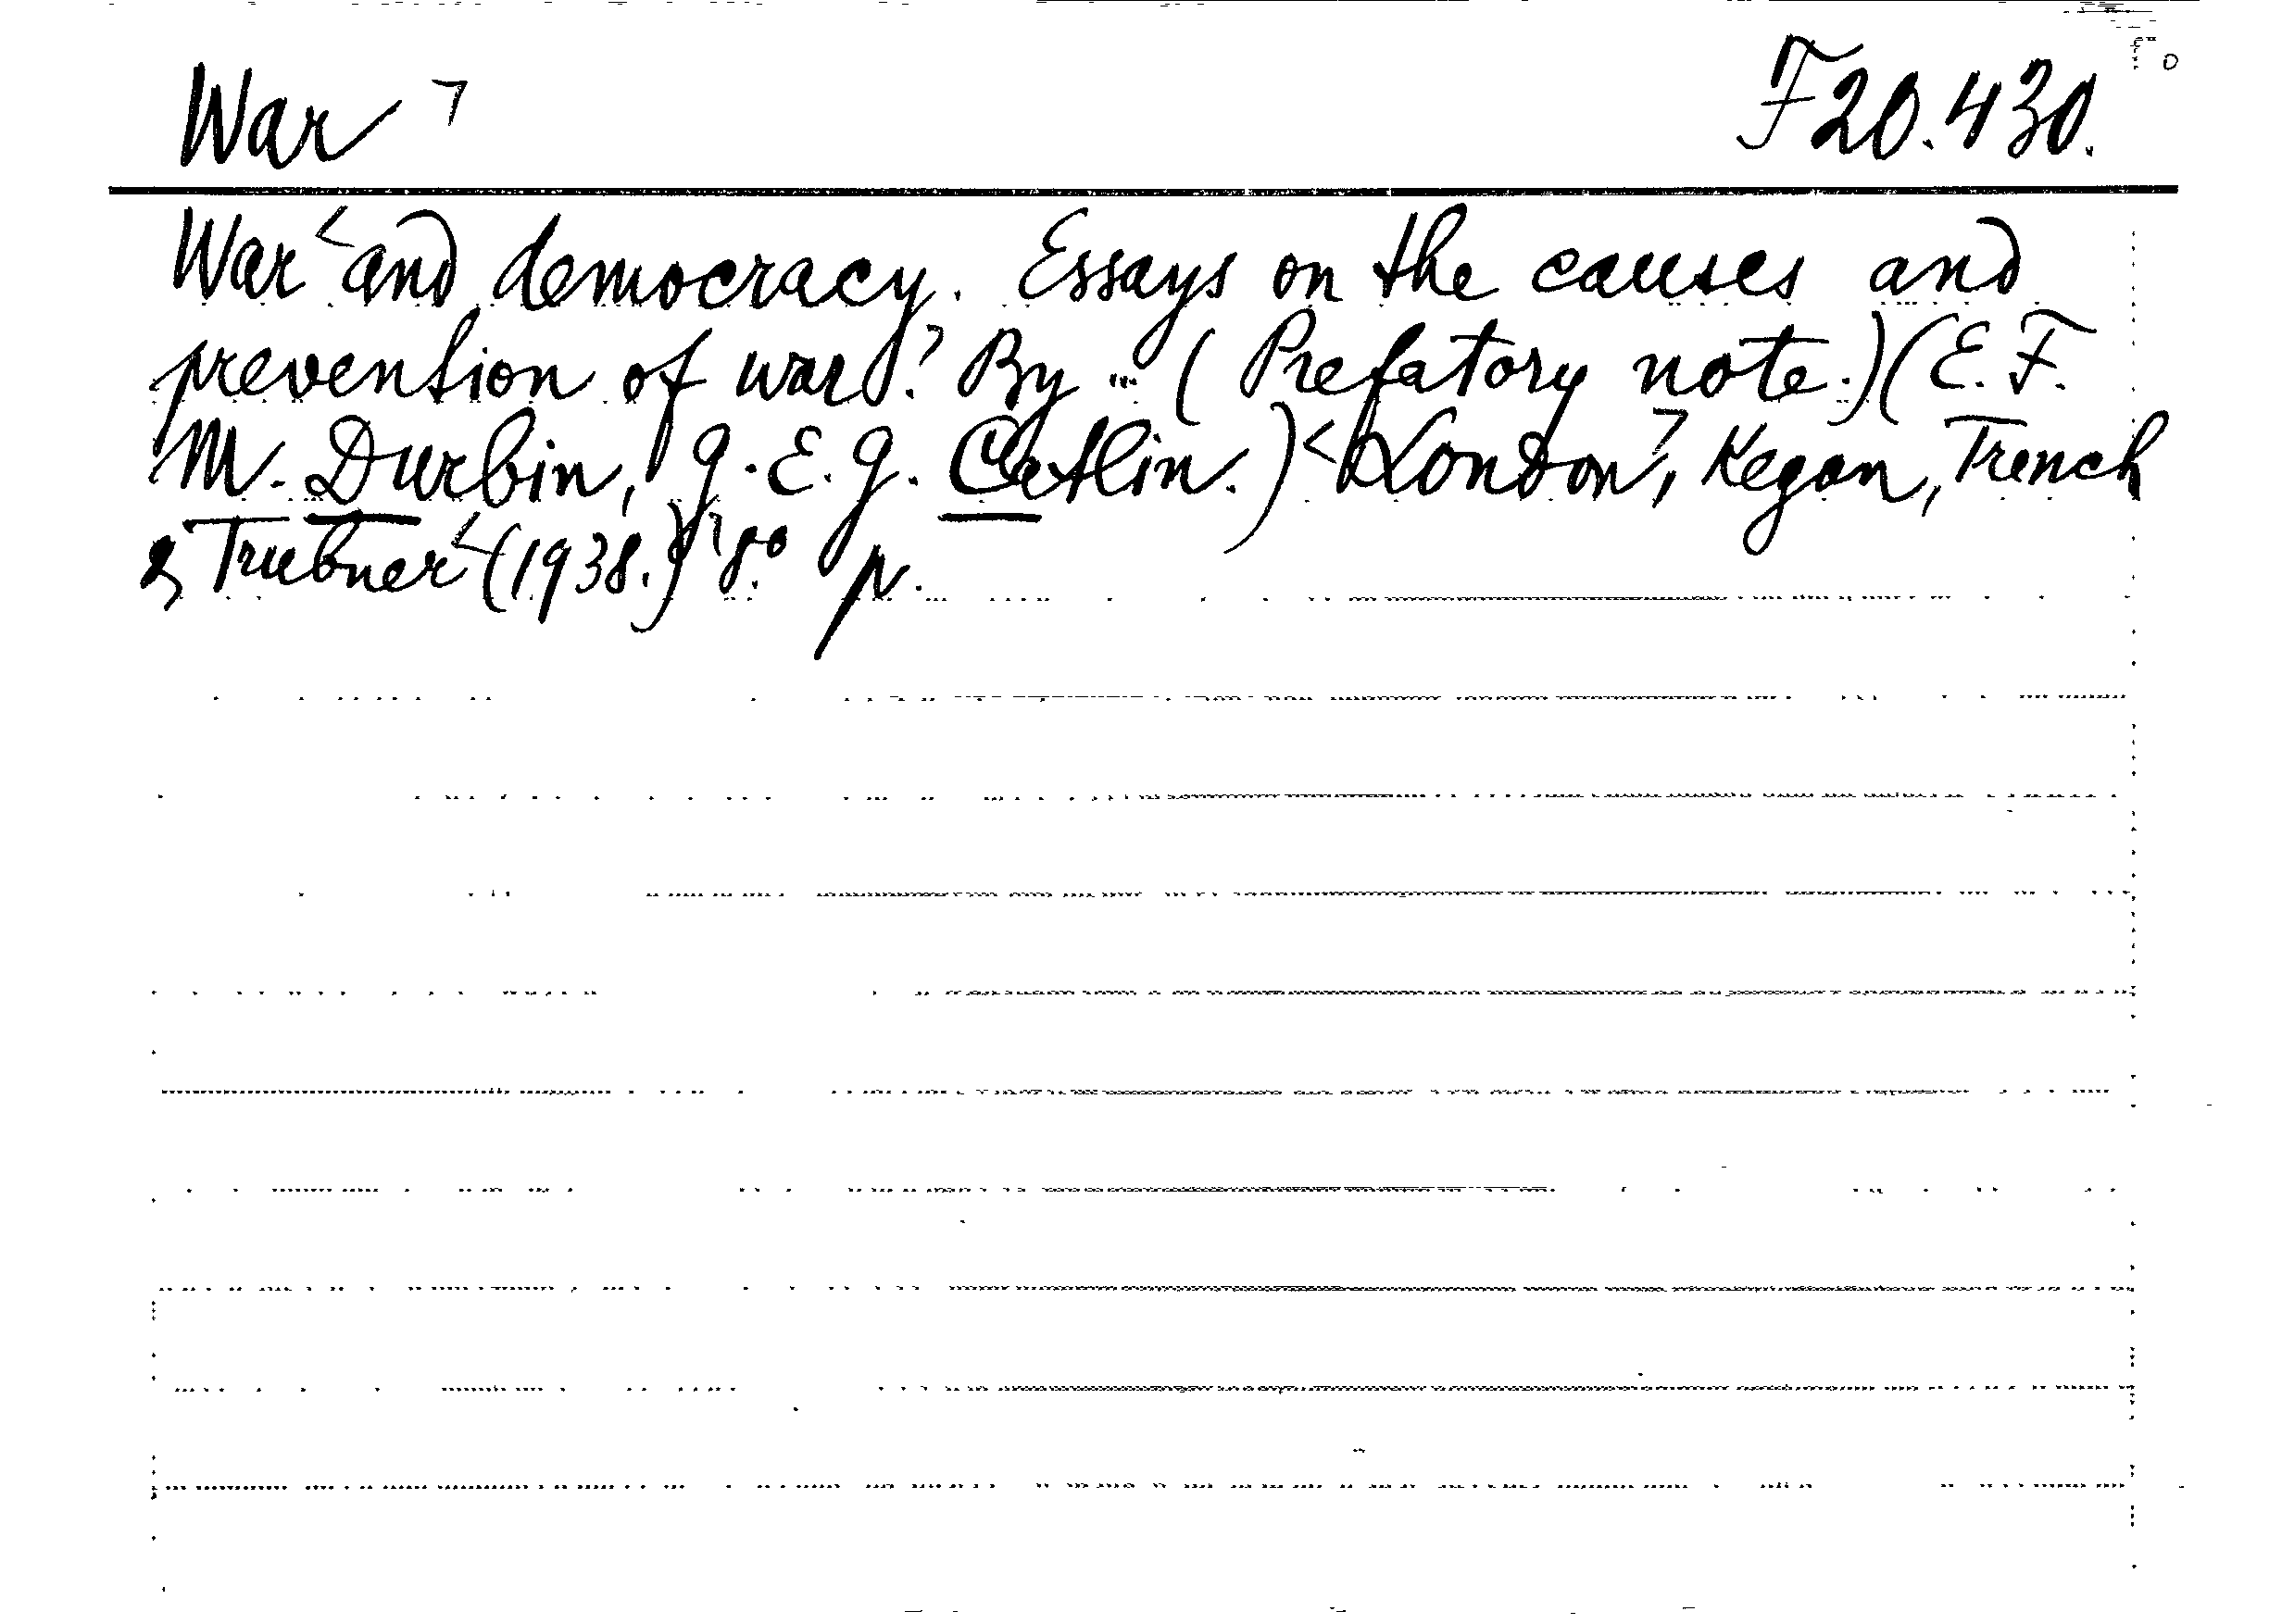 War F20.430.
War and democracy. Essays on the causes and
prevention of war. By ... (Prefatory note.) (E. F.
M. Durbin, G. E. G. Catlin.) London, Kegan, Trench
& Trubner (1938.) 8.º p.